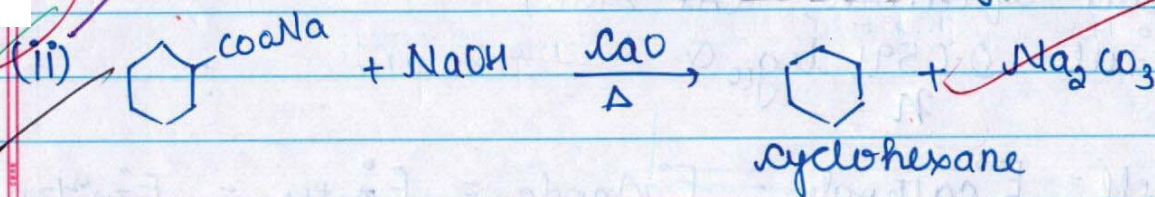 (ii) COONa + NaOH CaO Δ → + Na₂CO₃
cyclohexane